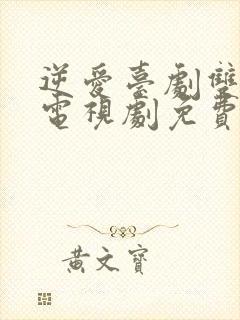 逆愛臺劇雙
電視劇免費
黃文寶